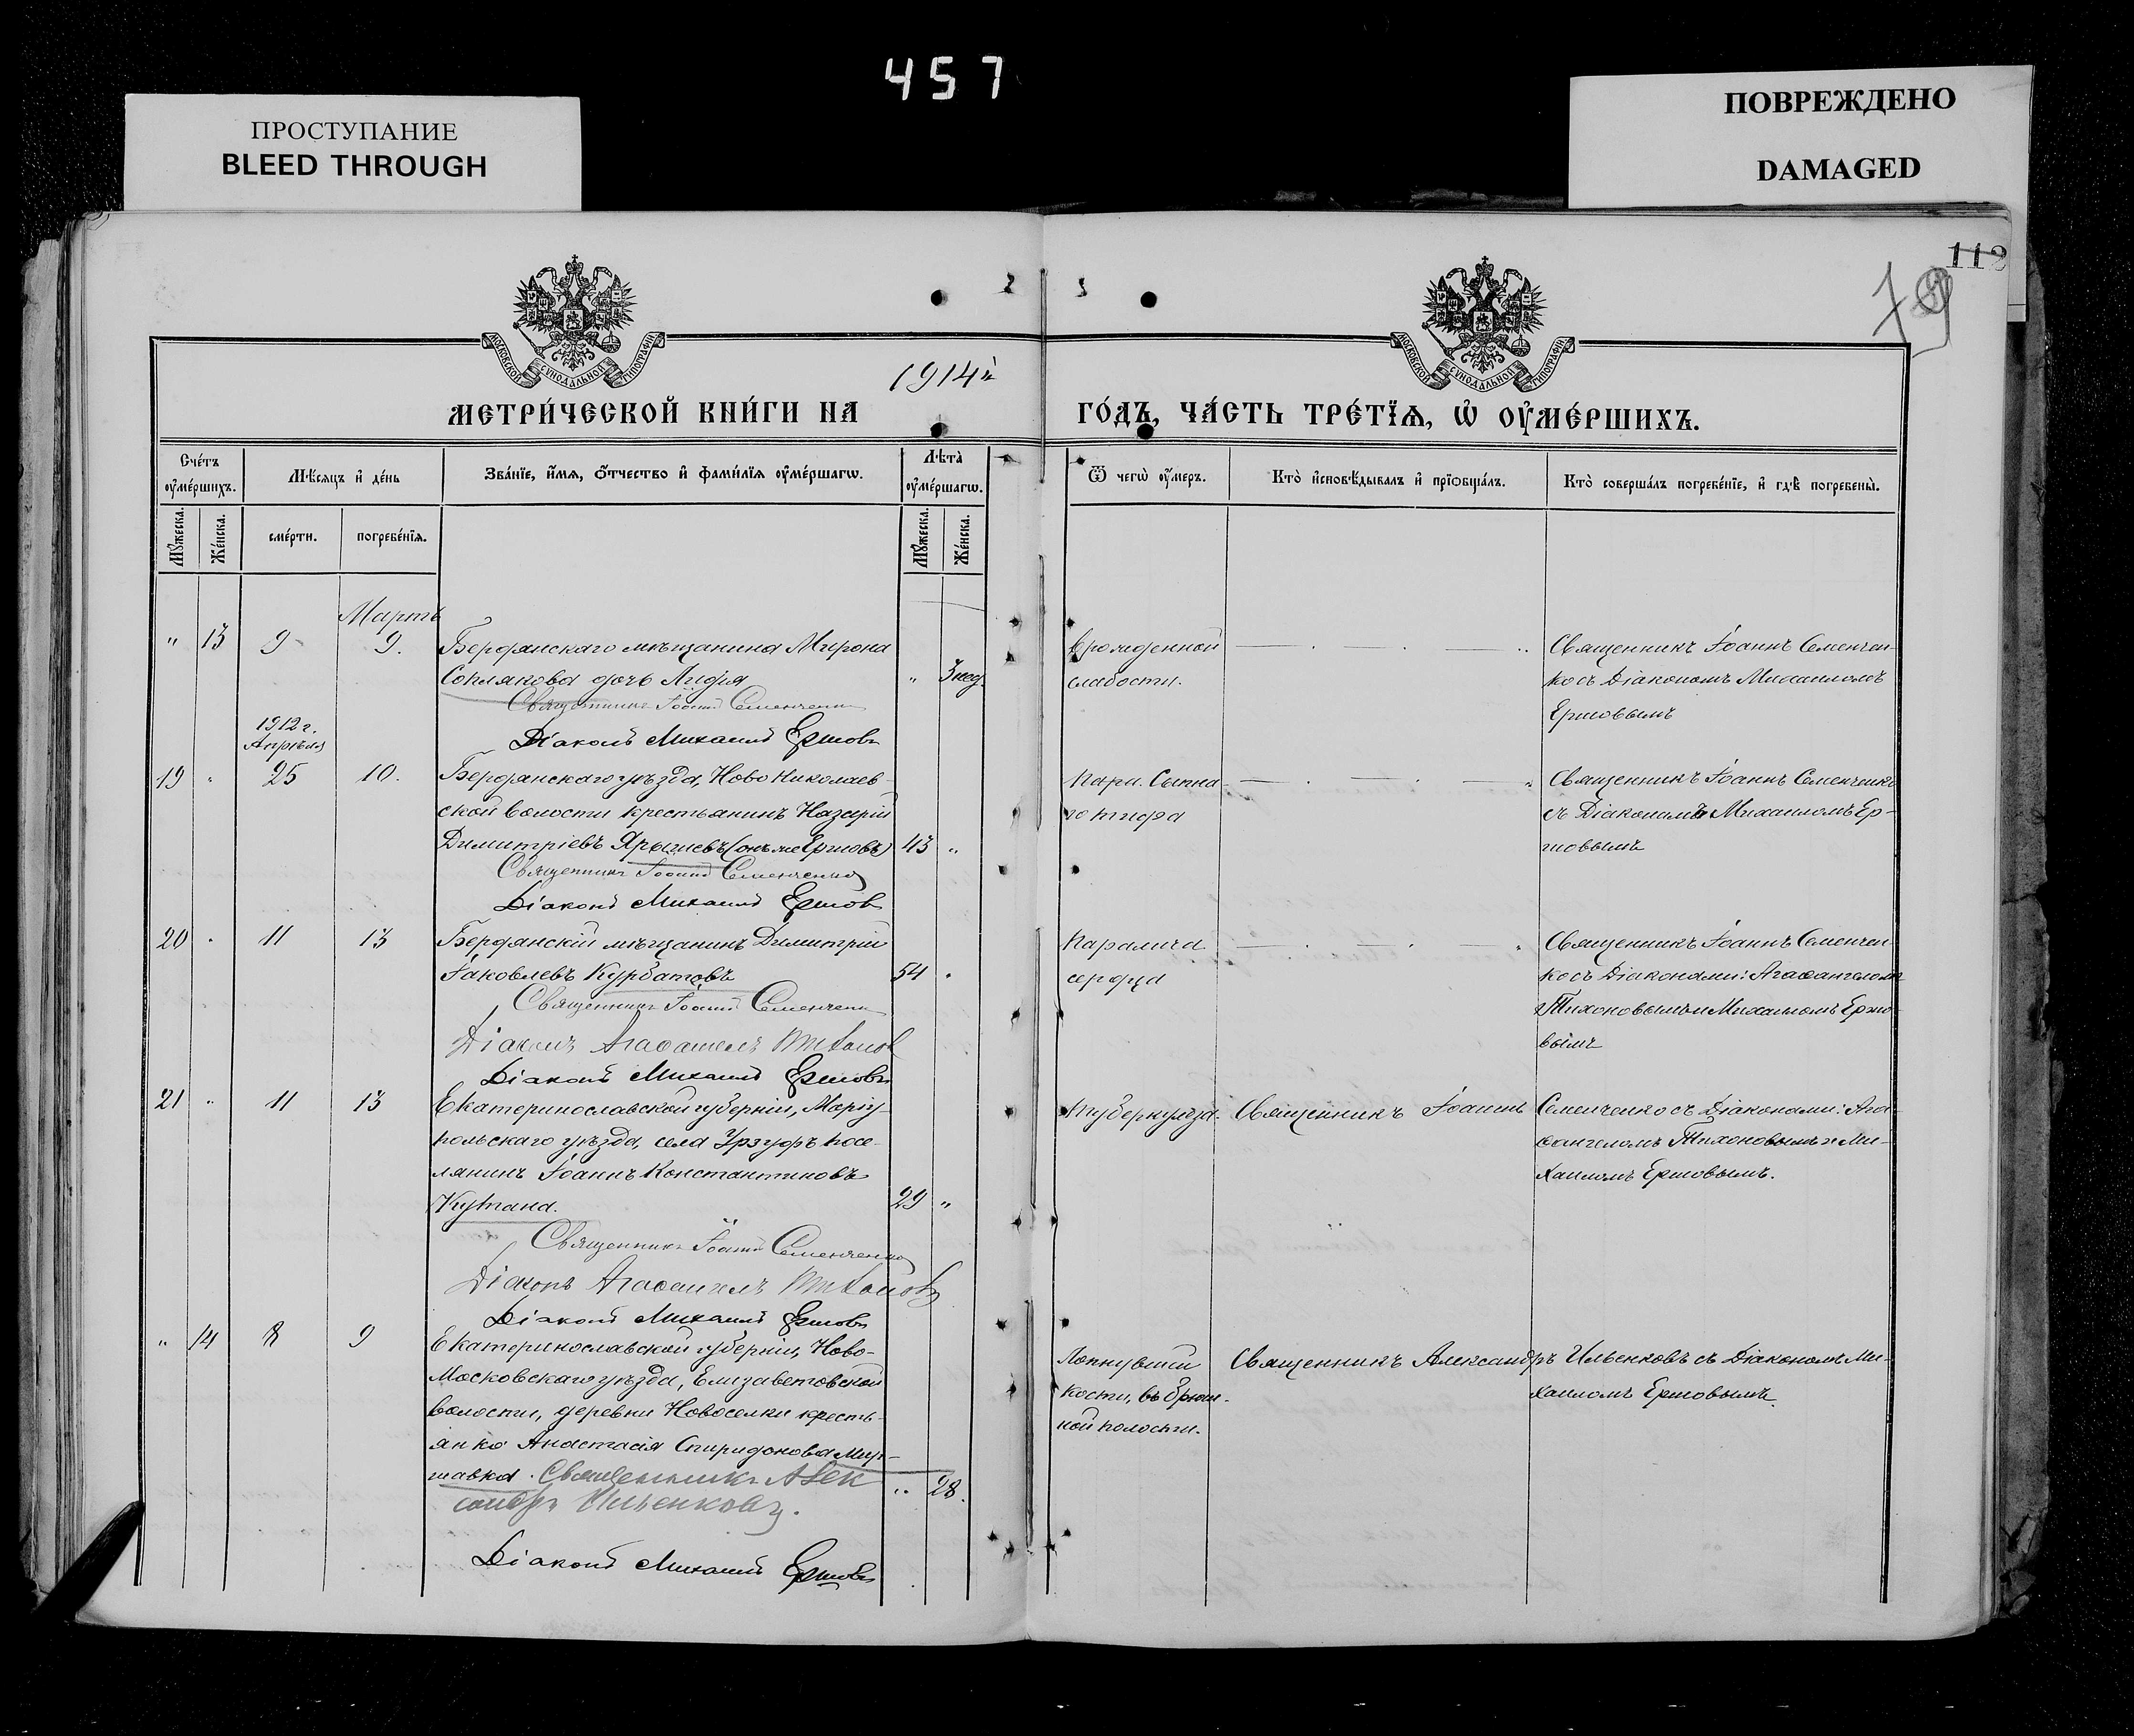 457
ПРОСТУПАНИЕ
BLEED THROUGH
ПОВРЕЖДЕНО
DAMAGED
112
79
МОСКОВСКОЙ СѴНОДАЛЬНОЙ ТИПОГРАФІИ
МОСКОВСКОЙ СѴНОДАЛЬНОЙ ТИПОГРАФІИ
1914й
МЕТРИ́ЧЕСКОЙ КНИ́ГИ НА
ГО́ДЪ, ЧА́СТЬ ТРЕ́ТЇѦ, Ѡ҆ ОУ҆МЕ́РШИХЪ.
Сче́тъ оу҆ме́ршихъ.
Мѣ́сяцъ и҆ де́нь
Зва́нїе, и҆́мѧ, ѻ҆́тчество и҆ фами́лїѧ оу҆ме́ршагѡ.
Лѣ́та̀ оу҆ме́ршагѡ.
Ѿ чегѡ̀ оу҆́меръ.
Кто̀ и҆сповѣ́дывалъ и҆ прїѡбща́лъ.
Кто̀ соверша́лъ погребе́нїе, и҆ гдѣ̀ погребены̀.
Мꙋ́жеска.
Же́нска.
сме́рти.
погребе́нїѧ.
Мꙋ́жеска.
Же́нска.
Мартъ
" 13 9 9. Бердянскаго мѣщанина Мирона
Соплякова дочь Лидія " 3 нед.
Священникъ Іоаннъ Семенченко
Діаконъ Михаилъ Ершовъ
врожденной
слабости.
Священникъ Іоаннъ Семенчен-
ко съ Діакономъ Михаиломъ
Ершовымъ
1912 г.
Апрѣля
19 " 25 10. Бердянскаго уѣзда, Ново Николаев-
ской волости крестьянинъ Назарій
Димитріевъ (онъ же Ершовъ) 43 "
Священникъ Іоаннъ Семенченко
Діаконъ Михаилъ Ершов
Сыпна-
го тифа
Священникъ Іоаннъ Семенченко
съ Діакономъ Михаиломъ Ер-
шовымъ
20 " 11 13 Бердянскій мѣщанинъ Димитрій
Іаковлевъ Курбатовъ 54 "
Священникъ Іоаннъ Семенченко
Діаконъ Агаѳангелъ Тихонов
Діаконъ Михаилъ Ершовъ
Паралича
сердца
Священникъ Іоаннъ Семенчен-
ко съ Діаконами: Агаѳангеломъ
Тихоновымъ и Михаиломъ Ершо-
вымъ
21 " 11 13 Екатеринославской губерніи, Маріу-
польскаго уѣзда, села Урзуфъ посе-
лянинъ Іоаннъ Константиновъ
29 "
Священникъ Іоаннъ Семенченко
Діаконъ Агаѳангелъ Тихоновъ
Діаконъ Михаилъ Ершовъ
туберкулеза. Священникъ Іоаннъ Семенченко съ Діаконами: Ага-
ѳангеломъ Тихоновымъ и Ми-
хаиломъ Ершовымъ.
" 14 8 9 Екатеринославской губерніи, Ново-
Московскаго уѣзда, Елизаветовской
волости, деревни Новоселки кресть-
янка Анастасія Спиридонова
Священникъ Алек " 28.
сандръ Ильенковъ.
Діаконъ Михаилъ Ершовъ
Лопнувшей
кости, въ брюш-
ной полости.
Священникъ Александръ Ильенковъ съ Діакономъ Ми-
хаиломъ Ершовымъ.